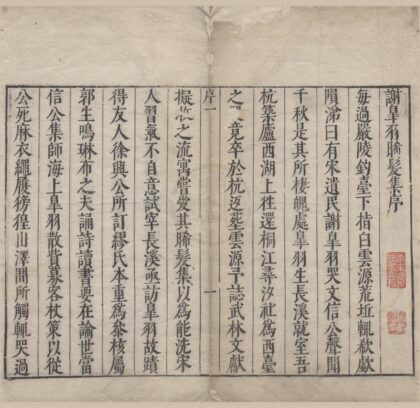 謝皐羽晞髮集序
每過嚴陵釣臺下指白雲源荒坵輒欷歔
隕涕曰有宋遺民謝皐羽哭文信公聲聞
千秋是其所棲魄處皐羽生長溪就室吾
杭築廬西湖上徃還桐江尋汐社爲西臺
之竟卒於杭返塟雲源予誌武林文獻
序一
擬之流寓嘗愛其晞髮集以爲能洗宋
人習氣不自意試宰長溪亟訪皐羽故蹟
得友人徐興公所訂繆氏本重爲叅核屬
郭生鳴琳布之夫誦詩讀書要在論世當
信公集師海上皐羽散貲募客杖策以從
公死麻衣繩屨徬徨山澤間所觸輒哭過